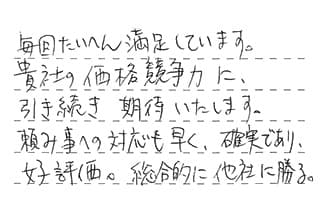 毎回たいへん満足しています。
貴社の価格競争力に、
引き続き期待いたします。
頼み事への対応も早く、確実であり、
好評価。総合的に他社に勝る。